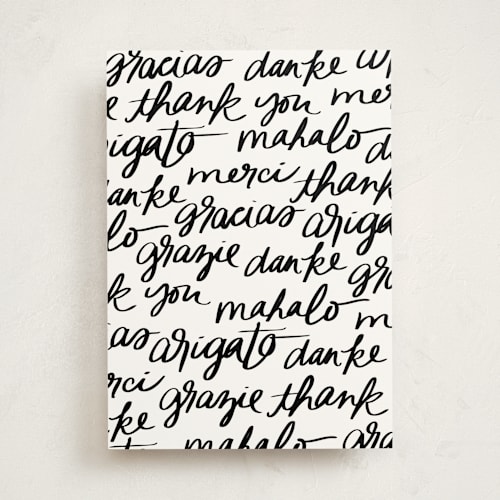 gracias danke
thank you mer
igato mahalo d
anke merci thank
lo gracias ariga
grazie danke gr
k you mahalo m
as arigato danke
rci grazie thank
ke mahalo gra